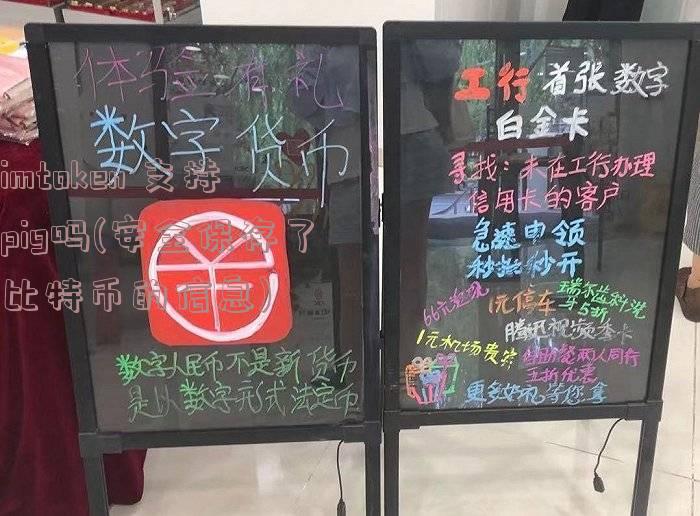 体验有礼
数字货币
数字人民币不是新货币
是以数字形式法定币
imtoken 支持
pig吗(安全保存了
比特币的信息)
工行 首张数字
白金卡
寻找:未在工行办理
信用卡的客户
急速申领
秒批秒开
66元
1元停车
瑞尔齿科洗
牙5折
腾讯视频季卡
1元机场贵宾
两人同行
五折优惠
更多好礼等您拿